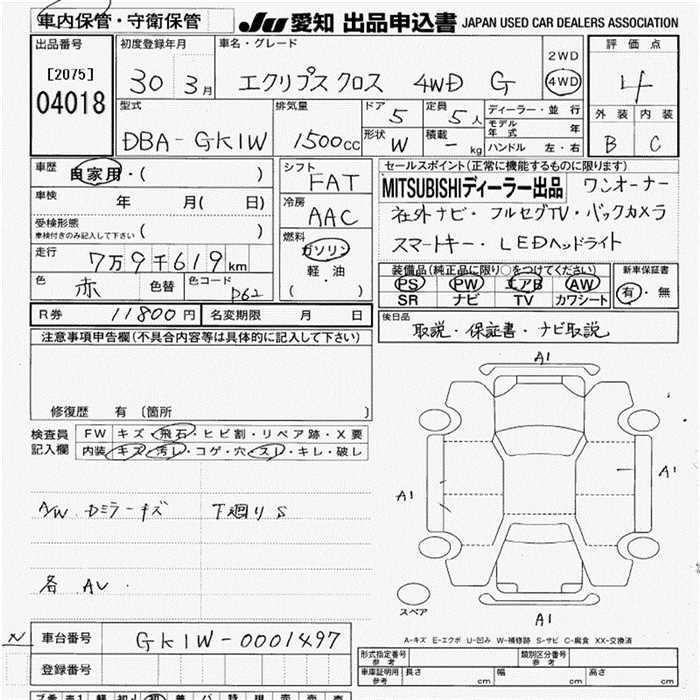 車内保管・守衛保管 JU 愛知 出品申込書 JAPAN USED CAR DEALERS ASSOCIATION
出品番号 初度登録年月 車名・グレード 2WD 評価点
[2075] 30 3月 エクリプス クロス 4WD G 4WD 4
04018 型式 排気量 ドア 5 定員 5人 ディーラー・並行 外装 内装
モデル年式 年
DBA-GK1W 1500cc 形状 W 積載 - kg ハンドル 左・右 B C
車歴 自家用・( ) シフト セールスポイント(正常に機能するものに限ります)
FAT MITSUBISHIディーラー出品 ワンオーナー
車検 年 月( 日) 冷房 社外ナビ・フルセグTV・バックカメラ
受検形態 AAC
車検付きのみ記入して下さい ( ) 燃料 スマートキー・LEDヘッドライト
走行 7万9千619km ガソリン
軽・油 装備品(純正品に限り○をつけてください) 新車保証書
色 赤 色替 色コード P62 ( ) PS PW エアB AW 有・無
SR ナビ TV カワシート
R券 11800円 名変期限 月 日 後日品
取説・保証書・ナビ取説
注意事項申告欄(不具合内容等は具体的に記入して下さい)
A1
修復歴 有 [箇所 ]
検査員 FW キズ・飛石・ヒビ割・リペア跡・X要
記入欄 内装 キズ・汚レ・コゲ・穴・スレ・キレ・破レ
A1 A1
A/W Dミラーキズ 下廻りS
各 AU.
スペア
A1
A-キズ E-エクボ U-凹み W-補修跡 S-サビ C-腐食 XX-交換済
N 車台番号 GK1W-0001497
形式指定番号 参考 類別区分番号 参考
登録番号 車庫証明用 参考 長さ cm 幅 cm 高さ cm